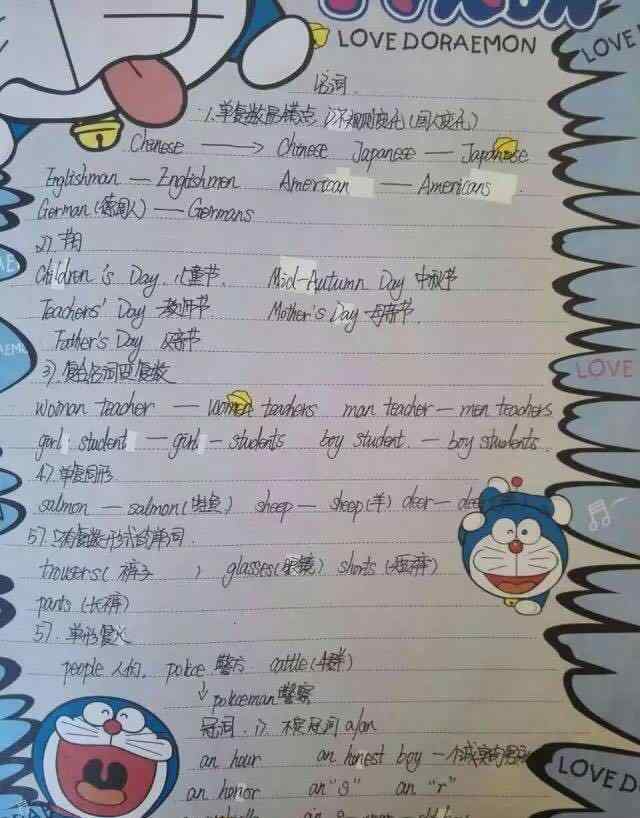 LOVE DORAEMON
LOVE
名词.
1.单复数易错点 1)不规则变化(国人变化)
Chinese → Chinese Japanese — Japanese
Englishman — Englishmen American — Americans.
German(德国人) — Germans
2). 节日
Children's Day. 儿童节. Mid-Autumn Day 中秋节
Teachers' Day 教师节 Mother's Day 母亲节.
Father's Day 父亲节
LOVE
3). 复合名词变复数
woman teacher — women teachers man teacher — men teachers
girl student — girl - students boy student. — boy students.
4). 单复同形
salmon — salmon(鲑鱼) sheep — sheep(羊) deer — deer
5). 只有复数形式的单词.
trousers( 裤子 ) glasses(眼镜) shorts (短裤)
pants (长裤)
5). 单形复义
people 人们. police 警方 cattle(牛群)
↓ policeman 警察
冠词. 1). 不定冠词 a/an
an hour an honest boy 一个诚实的男孩
LOVE DO
an honor an "s" an "r"